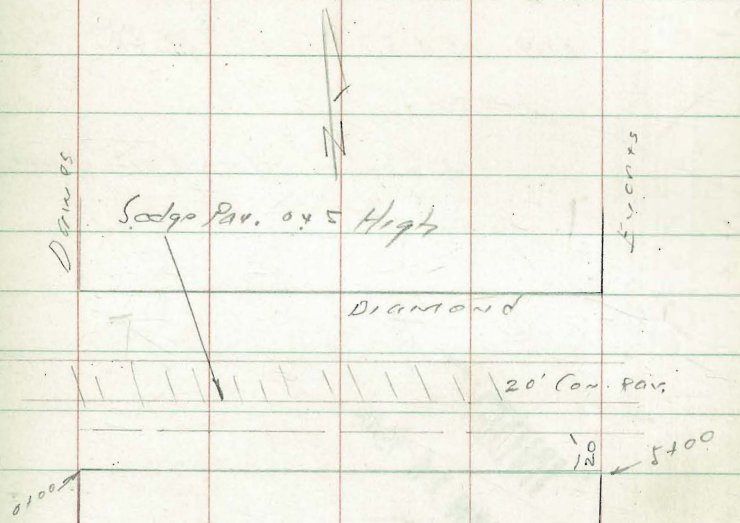 N
Daines
Evenas
Sodge Pav. 0x5 High
Diamond
20' Con. Pav.
20'
0+00
5+00